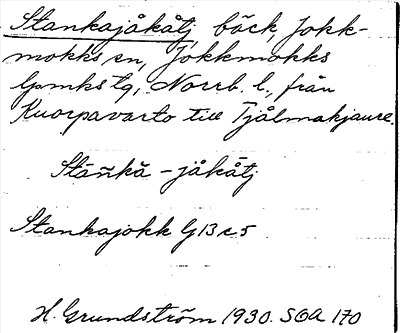 Stankajåkåtj, bäck, Jokk-
mokks sn, Jokkmokks
lpmks tg, Norrb. l., från
Kuorpavarto till Tjålmakjaure.
Stàñkă - jåkåtj
Stankajokk G13c5
H. Grundström 1930. SOA 170